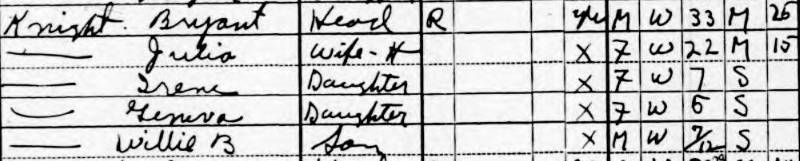 Knight Bryant Head R yes M W 33 M 25
— Julia Wife-H X F W 22 M 15
— Irene Daughter X F W 7 S
— Geneva Daughter X F W 5 S
— Willie B Son X M W 7/12 S